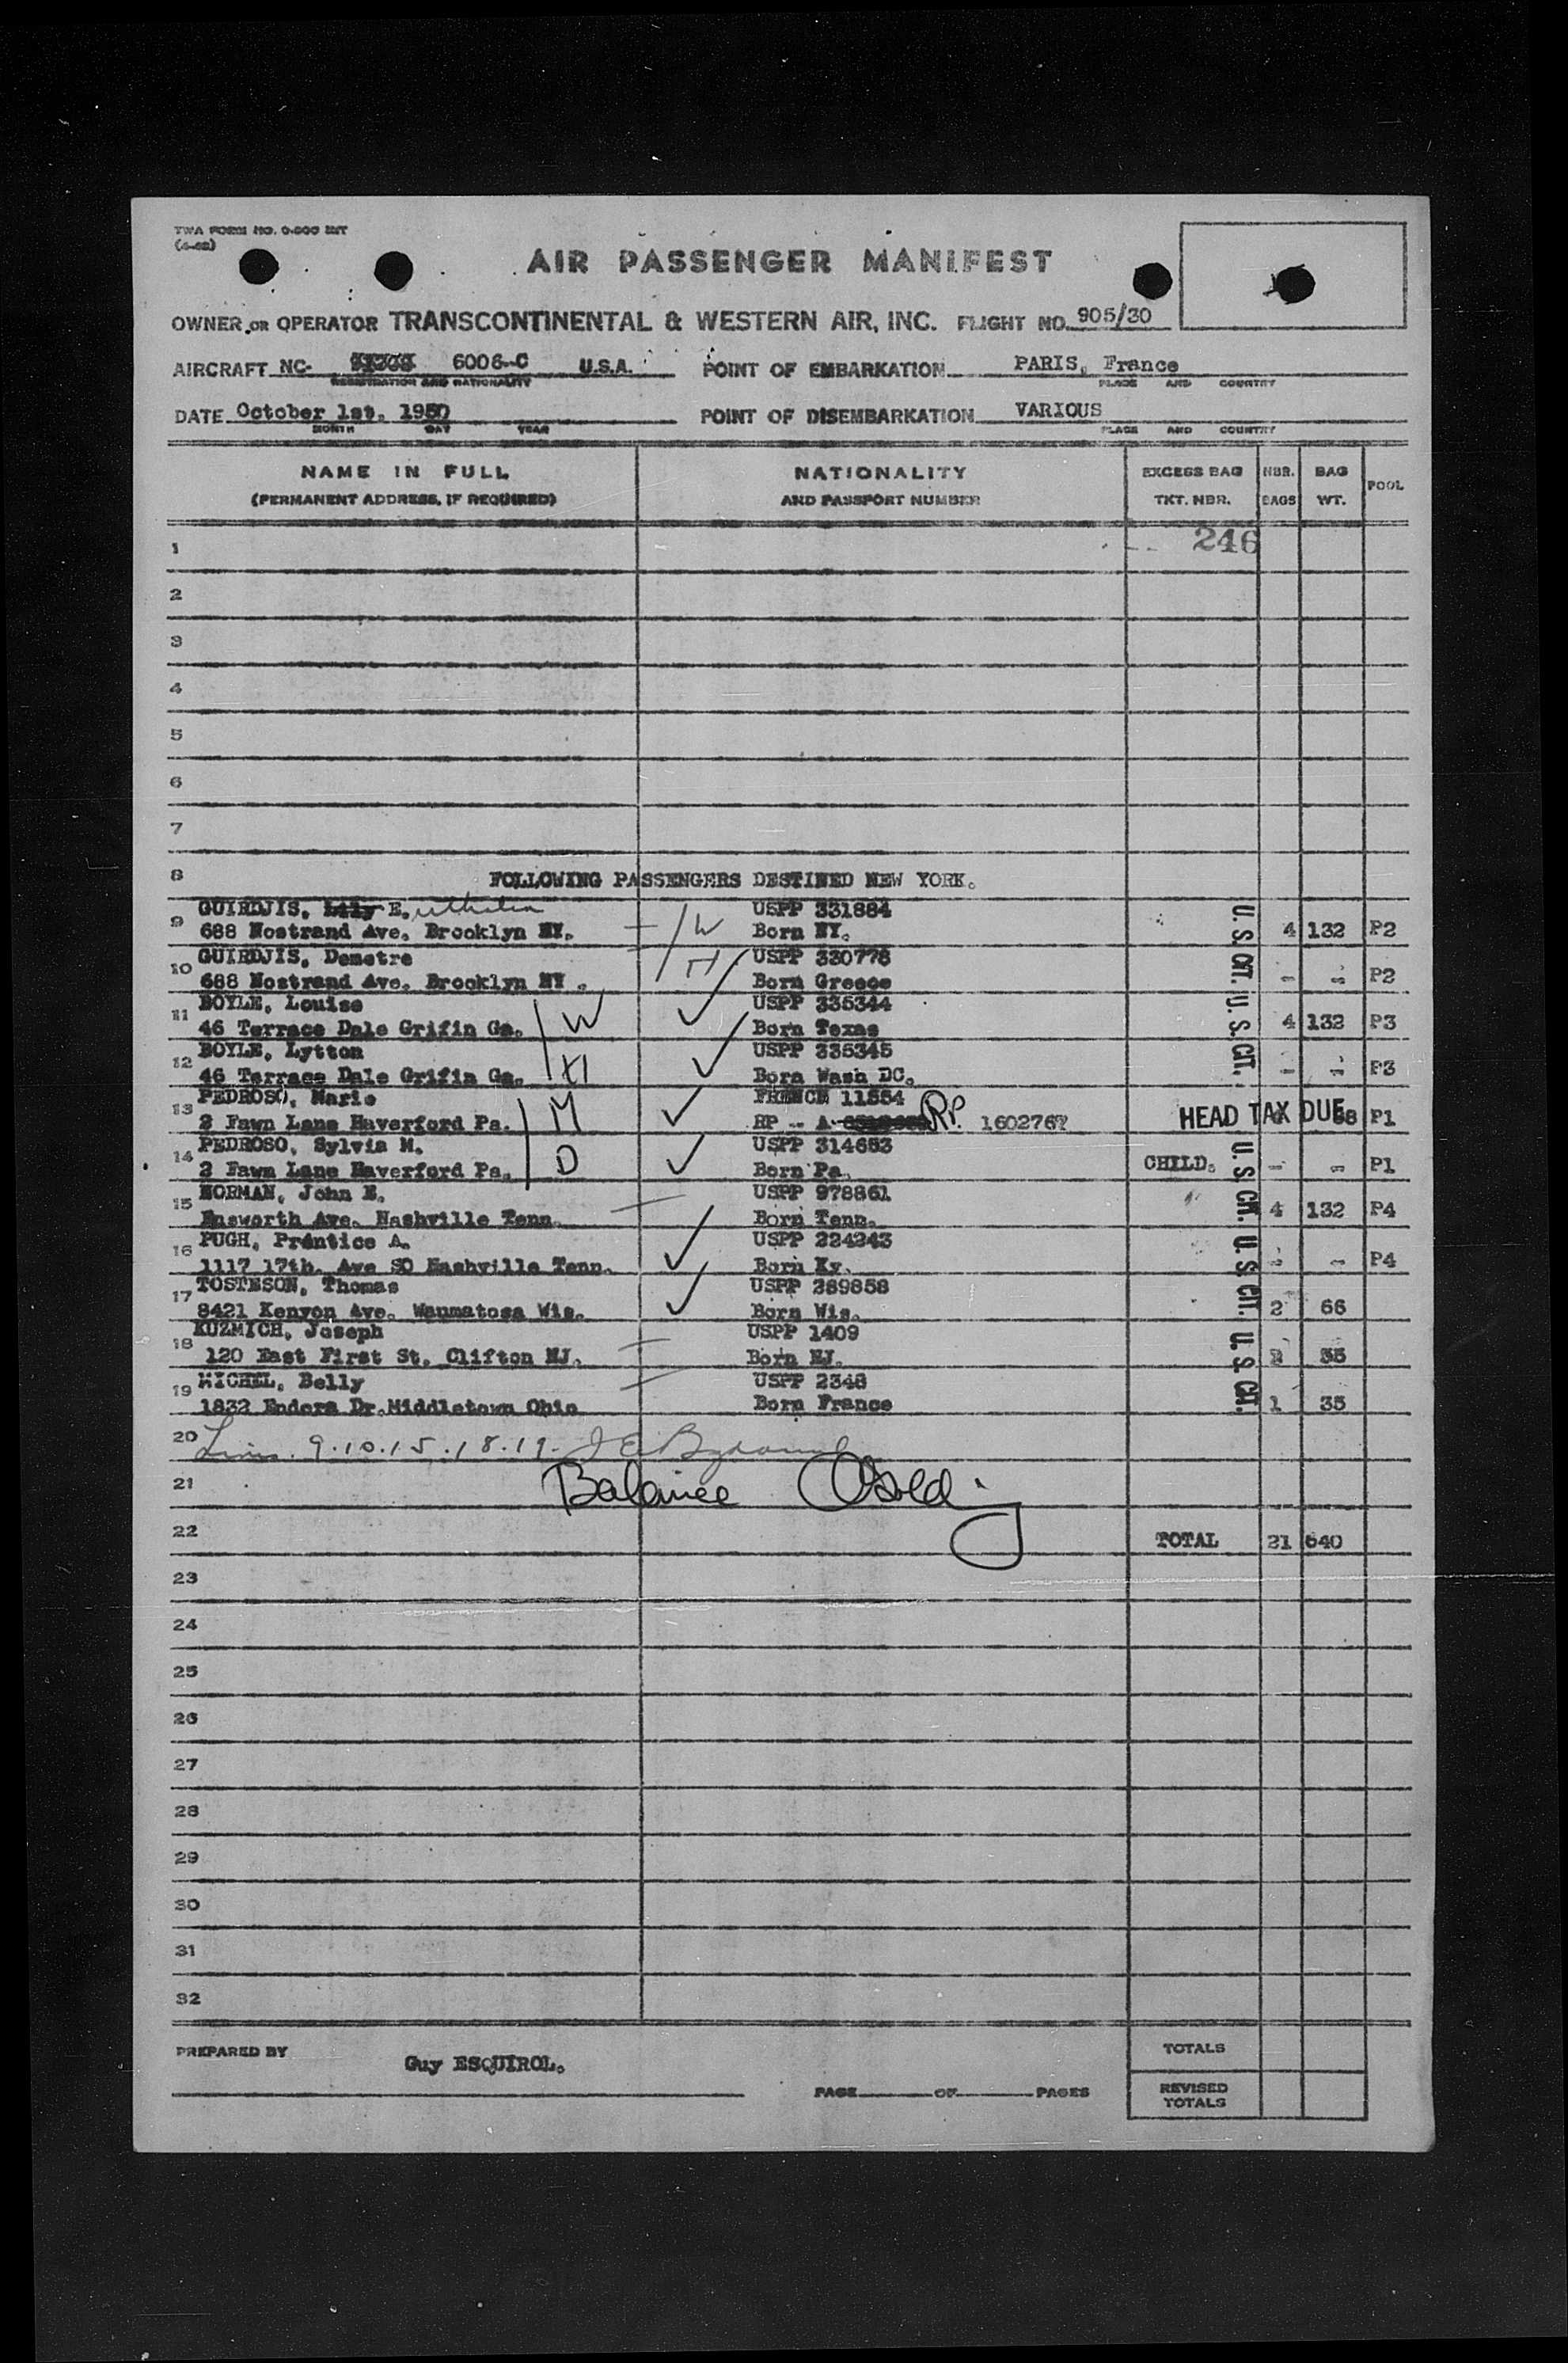 TWA FORM NO. 0-800 INT
AIR PASSENGER MANIFEST
OWNER OR OPERATOR TRANSCONTINENTAL & WESTERN AIR, INC. FLIGHT NO. 905/30
AIRCRAFT NC- 6006-C U.S.A. POINT OF EMBARKATION PARIS, France
REGISTRATION AND NATIONALITY PLACE AND COUNTRY
DATE October 1st. 1950 POINT OF DISEMBARKATION VARIOUS
MONTH DAY YEAR PLACE AND COUNTRY
NAME IN FULL NATIONALITY EXCESS BAG NBR. BAG POOL
(PERMANENT ADDRESS, IF REQUIRED) AND PASSPORT NUMBER TKT. NBR. BAGS WT.
1 246
2
3
4
5
6
7
8 FOLLOWING PASSENGERS DESTINED NEW YORK.
9 GUIRDJIS, Lily E. USPP 331884 U.S. CIT.
688 Nostrand Ave. Brooklyn NY. W Born NY. 4 132 P2
10 GUIRDJIS, Demetre H USPP 330778
688 Nostrand Ave. Brooklyn NY. Born Greece - - P2
11 BOYLE, Louise USPP 335344 U.S. CIT.
46 Terrace Dale Grifin Ga. W Born Texas 4 132 P3
12 BOYLE, Lytton USPP 335345
46 Terrace Dale Grifin Ga. H Born Wash DC. - - P3
13 PEDROSO, Marie FRENCH 11554
3 Fawn Lane Haverford Pa. M RP - A- RP. 1602767 HEAD TAX DUE 88 P1
14 PEDROSO, Sylvia M. USPP 314653 U.S. CIT.
3 Fawn Lane Haverford Pa. D Born Pa. CHILD. - - P1
15 NORMAN, John E. USPP 978861
Ensworth Ave. Nashville Tenn. Born Tenn. 4 132 P4
16 PUGH, Prentice A. USPP 224243 U.S. CIT.
1117 17th. Ave SO Nashville Tenn. Born Ky. - - P4
17 TOSTESON, Thomas USPP 289858
8421 Kenyon Ave. Waumatosa Wis. Born Wis. 2 66
18 KUZMICH, Joseph USPP 1409 U.S. CIT.
120 East First St. Clifton NJ. Born NJ. 35
19 MICHEL, Belly USPP 2348
1832 Endora Dr. Middletown Ohio Born France 1 35
20 9.10.15.18.19.
21 Balance
22 TOTAL 21 640
23
24
25
26
27
28
29
30
31
32
PREPARED BY Guy ESQUIROL. TOTALS
PAGE OF PAGES REVISED TOTALS